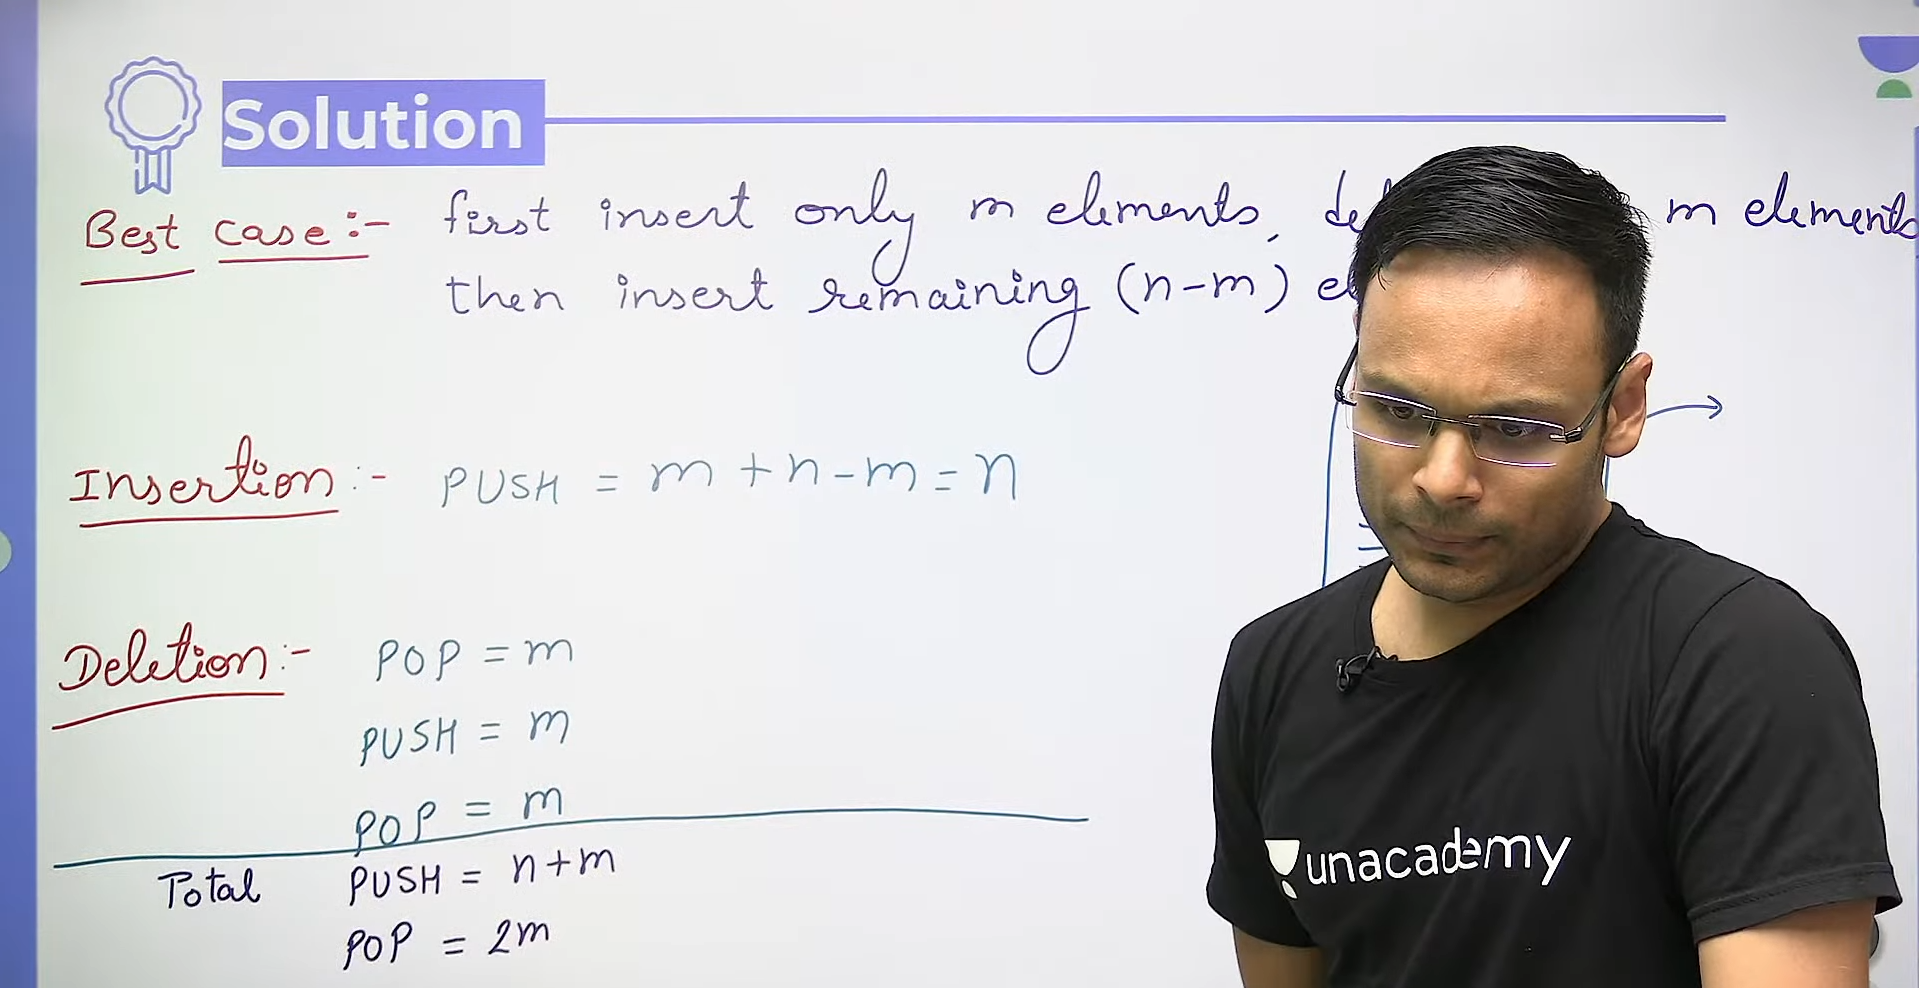 Solution
Best case :- first insert only m elements, m elements
then insert remaining (n-m)
Insertion :- PUSH = m + n - m = n
Deletion :- POP = m
PUSH = m
POP = m
Total PUSH = n+m
POP = 2m
unacademy